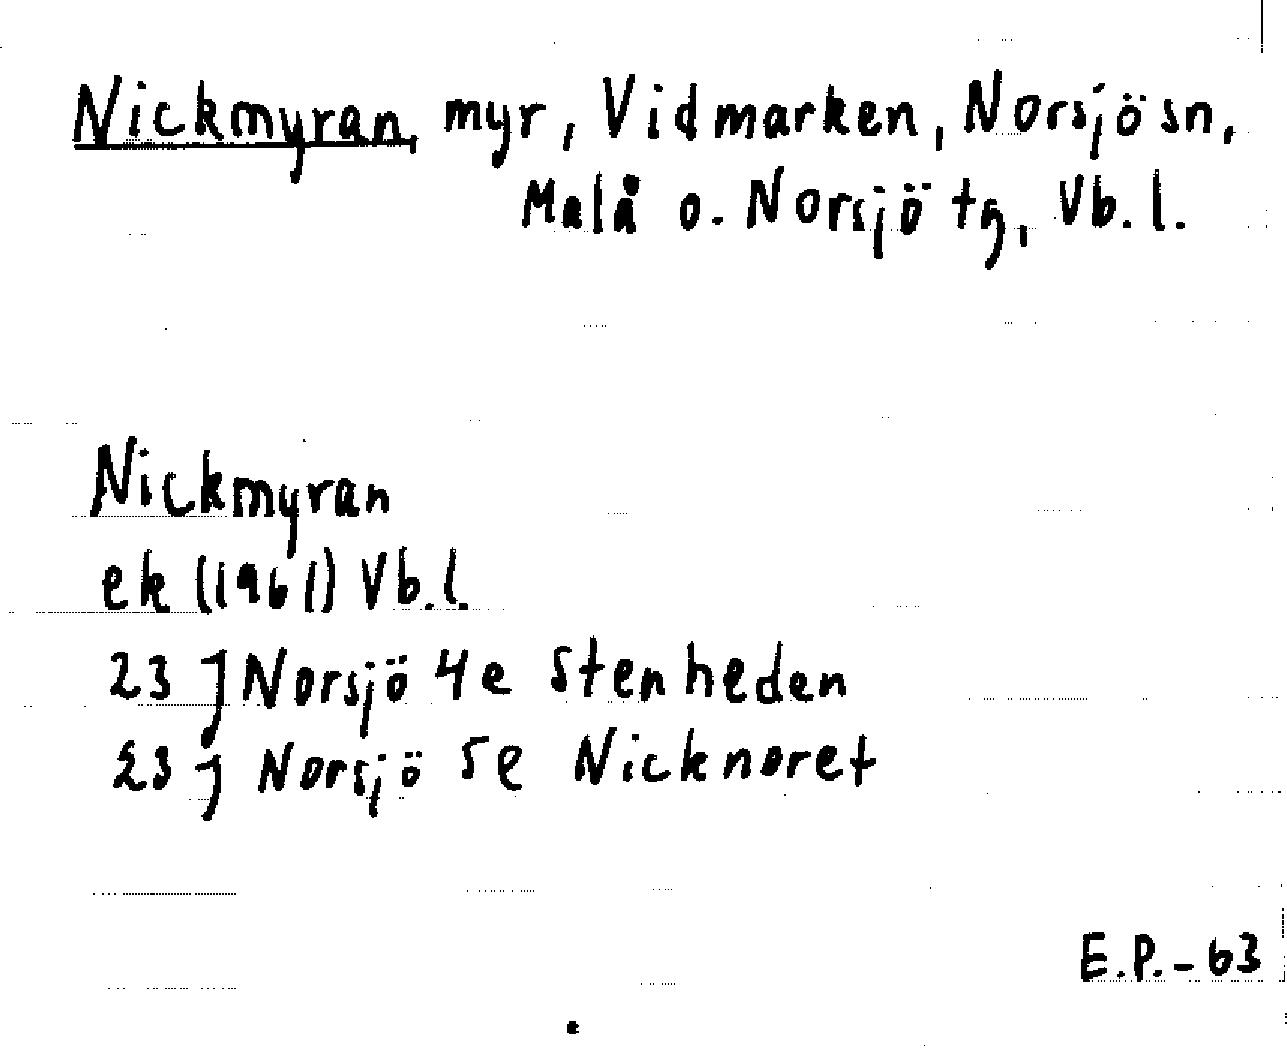 Nickmyran, myr, Vidmarken, Norsjö sn,
Malå o. Norsjö tg, Vb. l.
Nickmyran
ek (1961) Vb.l.
23 J Norsjö 4e Stenheden
23 J Norsjö 5e Nicknoret
E.P.-63